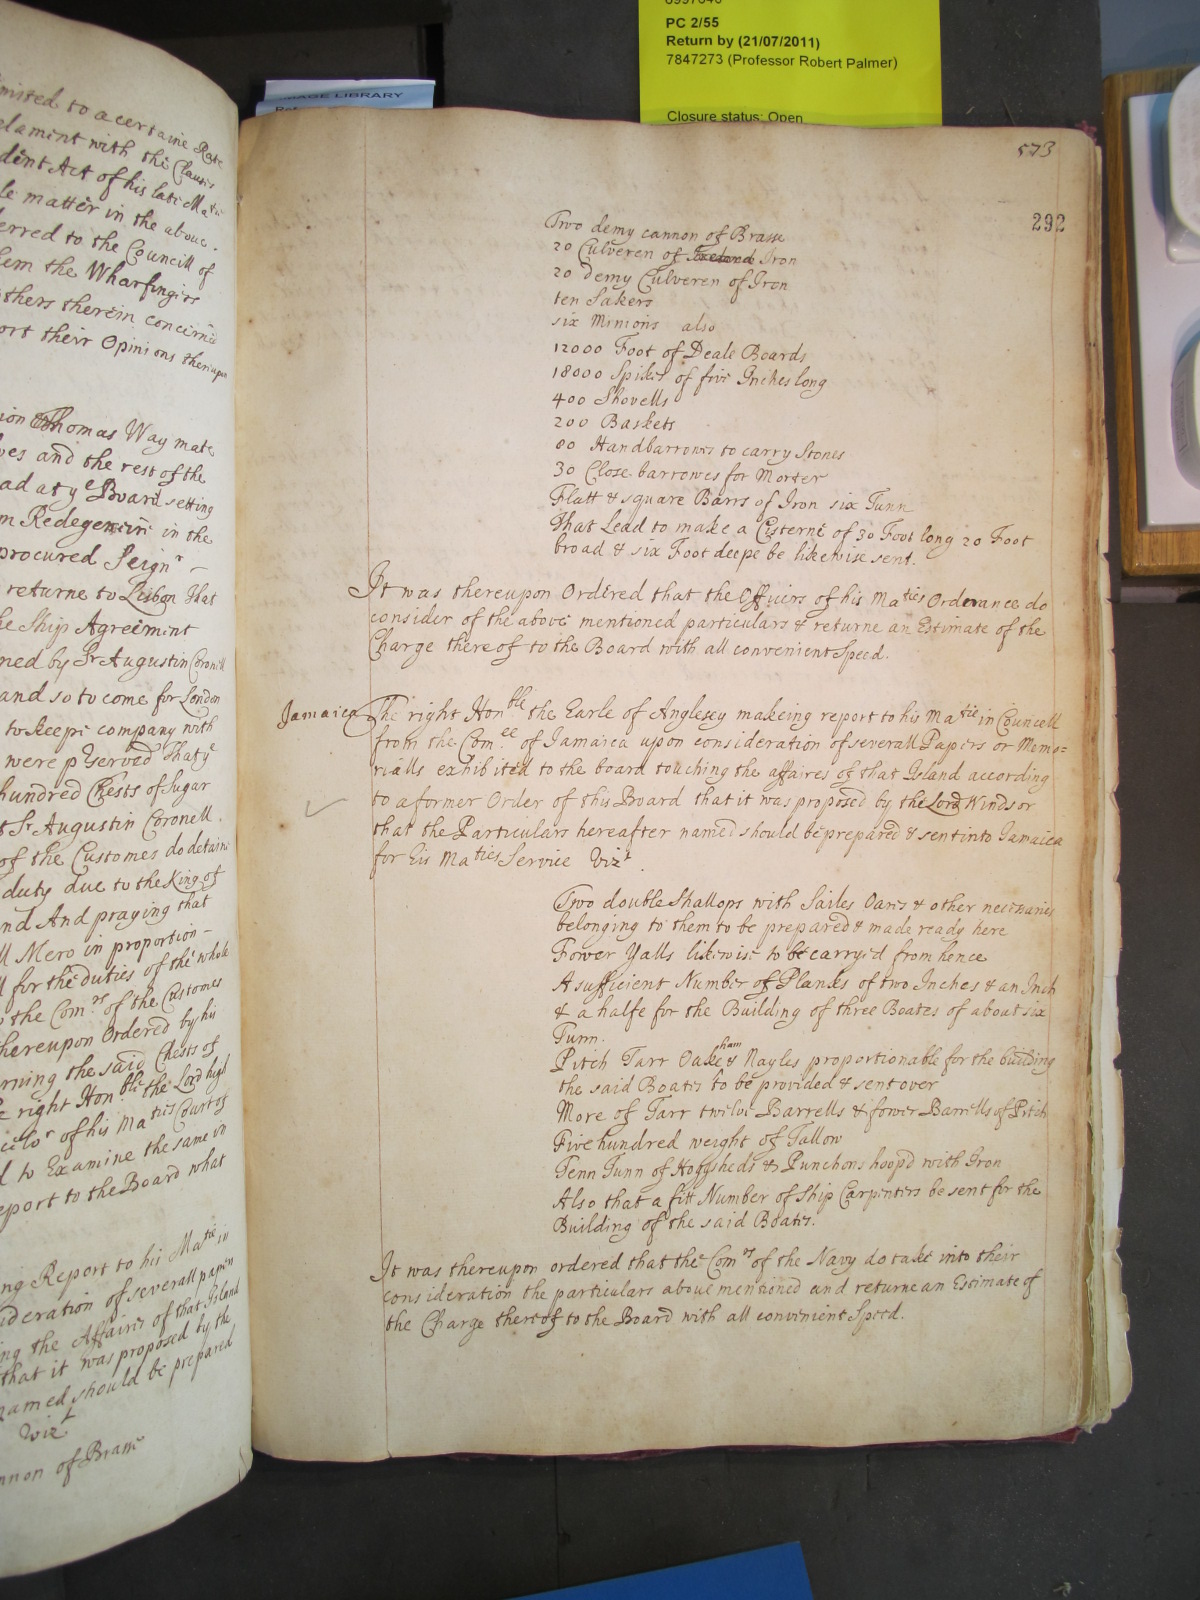 PC 2/55
Return by (21/07/2011)
7847273 (Professor Robert Palmer)
Closure status: Open
IMAGE LIBRARY
mited to a certaine Rate
lament with the Clauses
dent Act of his late Matie
le matter in the above
erred to the Councill of
them the Wharfingers
thers therein concerned
ort their Opinions thereupon
ion Thomas Way mate
ves and the rest of the
ad at ye Board setting
m Redegem in the
procured Seignr
returne to Lisbon That
he Ship Agreement
ned by Sr Augustin Coronell
and so to come for London
to keepe company with
were pserved That ye
hundred Chests of Sugar
t Sr Augustin Coronell
of the Customes do detaine
duty due to the King of
nd And praying that
ll Mero in proportion
l for the duties of the whole
o the Comrs of the Customes
thereupon Ordered by his
rning the said Chests of
e right Honble the Lord high
celor of his Maties Court of
d to Examine the same in
eport to the Board what
ng Report to his Matie in
ideration of severall papers
ng the Affaires of that Island
that it was proposed by the
named should be prepared
vizt
nnon of Brasse
573
292
Two demy cannon of Brasse
20 Culveren of Iron
20 demy Culveren of Iron
ten Sakers
six Minions also
12000 Foot of Deale Boards
18000 Spikes of five Inches long
400 Shovells
200 Baskets
80 Handbarrowes to carry Stones
30 Close barrowes for Morter
Flatt & square Barrs of Iron six Tunn
That Lead to make a Cisterne of 30 Foot long 20 Foot
broad & six Foot deepe be likewise sent.
It was thereupon Ordered that the Officers of his Maties Ordenance do
consider of the above mentioned particulars & returne an Estimate of the
Charge thereof to the Board with all convenient Speed.
Jamaica
The right Honble the Earle of Anglesey makeing report to his Matie in Councell
from the Comee of Jamaica upon consideration of severall Papers or Memo=
rialls exhibited to the board touching the affaires of that Island according
to a former Order of this Board that it was proposed by the Lord Windsor
that the Particulars hereafter named should be prepared & sent into Jamaica
for his Maties Service Vizt.
Two double Shallops with Sailes Oares & other necessaries
belonging to them to be prepared & made ready here
Fower Yalls likewise to be carryed from hence
A sufficient Number of Planks of two Inches & an Inch
& a halfe for the Building of three Boates of about six
Tunn.
Pitch Tarr Oakeham & Nayles proportionable for the building
the said Boates to be provided & sent over
More of Tarr twelve Barrells & fower Barrells of Pitch
Five hundred weight of Tallow
Tenn Tunn of Hoggsheds & Punchons hoopd with Iron
Also that a fitt Number of Ship Carpenters be sent for the
Building of the said Boates.
It was thereupon ordered that the Comrs of the Navy do take into their
consideration the particulars above mentioned and returne an Estimate of
the Charge thereof to the Board with all convenient Speed.